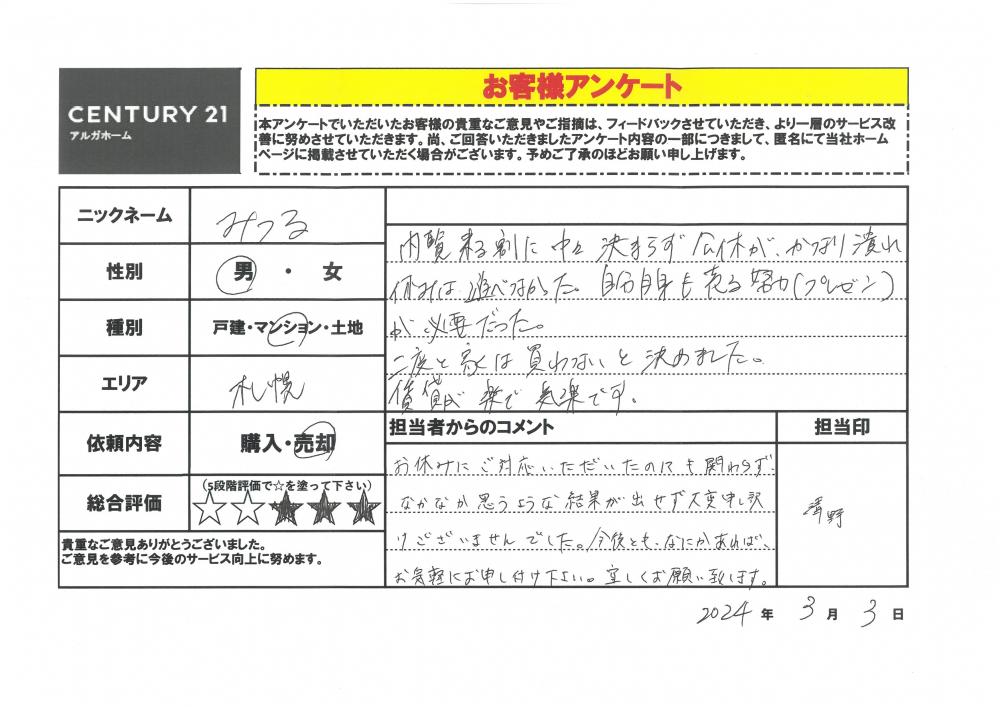 CENTURY 21
アルガホーム
お客様アンケート
本アンケートでいただいたお客様の貴重なご意見やご指摘は、フィードバックさせていただき、より一層のサービス改
善に努めさせていただきます。尚、ご回答いただきましたアンケート内容の一部につきまして、匿名にて当社ホーム
ページに掲載させていただく場合がございます。予めご了承のほどお願い申し上げます。
ニックネーム
みつる
性別
男・女
種別
戸建・マンション・土地
エリア
札幌
依頼内容
購入・売却
総合評価
(5段階評価で☆を塗って下さい)
☆☆★★★
貴重なご意見ありがとうございました。
ご意見を参考に今後のサービス向上に努めます。
内覧来る割に中々決まらず公休が、かなり潰れ
休みは遊べなかった。自分自身も売る努力(プレゼン)
が必要だった。
二度と家は買わないと決めました。
賃貸が楽で気楽です。
担当者からのコメント
担当印
お休みにご対応いただいたのにも関わらず
なかなか思うような結果が出せず大変申し訳
けございませんでした。今後とも、なにかあれば、
お気軽にお申し付け下さい。宜しくお願い致します。
2024年3月3日